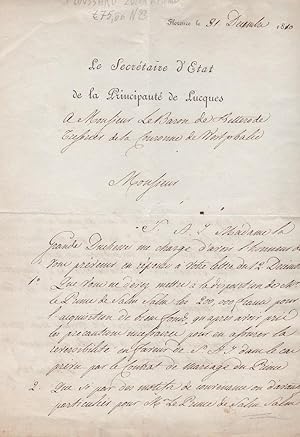 €75,00 N°93
Florence le 31 Decembre 1810
Le Secrétaire d'Etat
de la Principauté de Lucques
A Monsieur Le Baron de
Tresorier de la Couronne de Westphalie
Monsieur
S. A. I. Madame la
Grande Duchesse me charge d'avoir l'honneur de
Vous prevenir en réponse à votre lettre du 12 Decembre
1° Que Vous ne devez mettre à la disposition de Mr
Le Prince de Salm Salm les 200,000 francs pour
l'acquisition de bien fonds, qu'après avoir pris
les precautions necessaires pour en assurer la
reversibilité en faveur de S. A. I. dans le cas
prevu par le Contrat de mariage du Prince
2. Que si par des motifs de convenance ou d'
particulier pour Mr Le Prince de Salm Salm